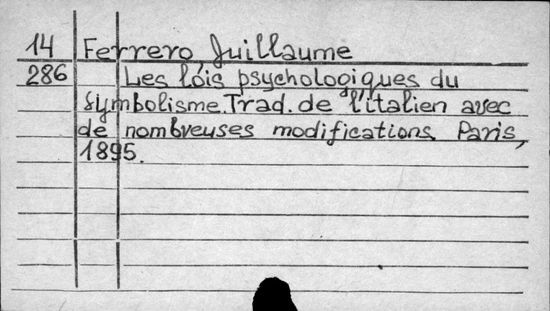 14 Ferrero, Guillaume
286 Les lois psychologiques du
symbolisme. Trad. de l'italien avec
de nombreuses modifications. Paris,
1895.